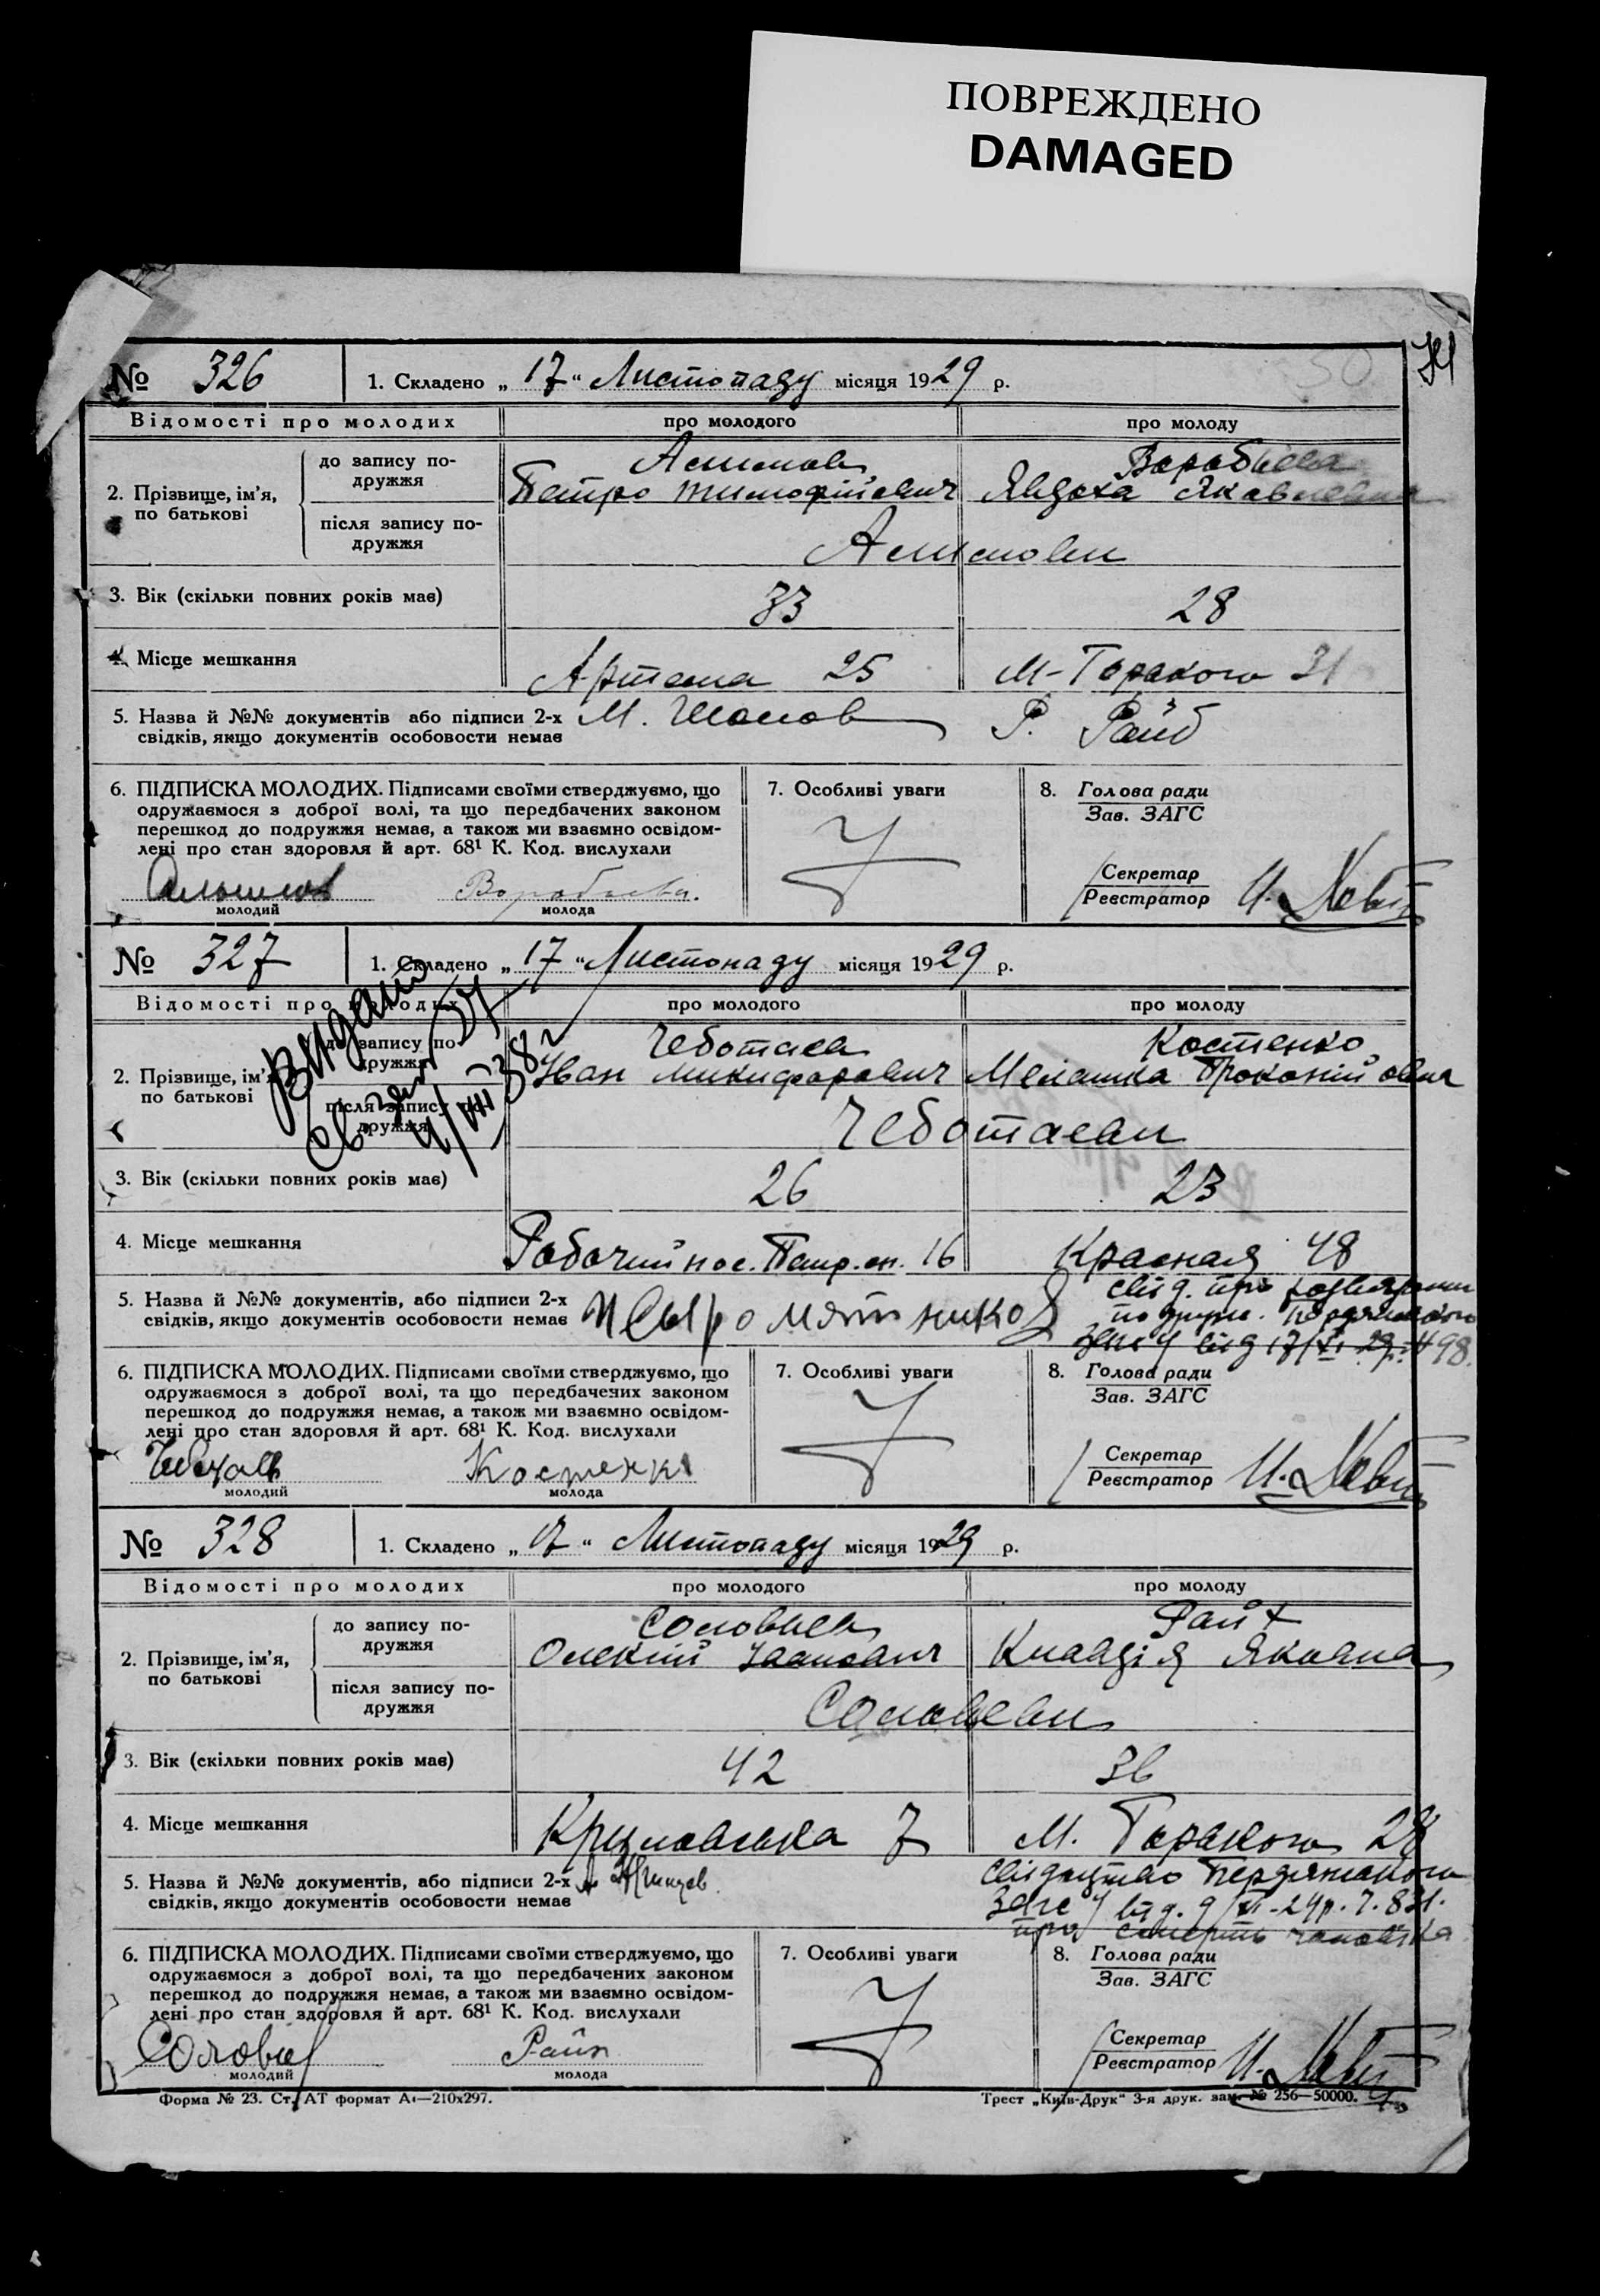 ПОВРЕЖДЕНО
DAMAGED
№ 326 1. Складено „17“ Листопаду місяця 1929 р.
Відомості про молодих про молодого про молоду
2. Прізвище, ім’я, по батькові
до запису по-
дружжя
Петро Тимофійович Явдоха
після запису по-
дружжя
3. Вік (скільки повних років має) 33 28
4. Місце мешкання Артема 25 М-Горького 31
5. Назва й №№ документів або підписи 2-х
свідків, якщо документів особовости немає
М. Р.
6. ПІДПИСКА МОЛОДИХ. Підписами своїми стверджуємо, що
одружаємося з доброї волі, та що передбачених законом
перешкод до подружжя немає, а також ми взаємно освідом-
лені про стан здоровля й арт. 68¹ К. Код. вислухали
молодий молода
7. Особливі уваги
8. Голова ради
Зав. ЗАГС
Секретар
Реєстратор
№ 327 1. Складено „17“ Листопаду місяця 1929 р.
Відомості про молодих про молодого про молоду
Видано
2. Прізвище, ім’я, по батькові
до запису по-
дружжя
Костенко
Іван Микифорович Мелашка
після запису по-
дружжя
3. Вік (скільки повних років має) 26 23
4. Місце мешкання Робочий пос. 16 Красная 48
5. Назва й №№ документів, або підписи 2-х
свідків, якщо документів особовости немає
свід. про
загсу від 17/XI 29р. № 98.
6. ПІДПИСКА МОЛОДИХ. Підписами своїми стверджуємо, що
одружаємося з доброї волі, та що передбачених законом
перешкод до подружжя немає, а також ми взаємно освідом-
лені про стан здоровля й арт. 68¹ К. Код. вислухали
Костенко
молодий молода
7. Особливі уваги
8. Голова ради
Зав. ЗАГС
Секретар
Реєстратор
№ 328 1. Складено „17“ Листопаду місяця 1929 р.
Відомості про молодих про молодого про молоду
2. Прізвище, ім’я, по батькові
до запису по-
дружжя
Соловьев
Олексій Іванович Клавдія
після запису по-
дружжя
Соловьеви
3. Вік (скільки повних років має) 42 36
4. Місце мешкання 7 М. Горького 28
5. Назва й №№ документів, або підписи 2-х
свідків, якщо документів особовости немає
загсу від
про смерть чоловіка
6. ПІДПИСКА МОЛОДИХ. Підписами своїми стверджуємо, що
одружаємося з доброї волі, та що передбачених законом
перешкод до подружжя немає, а також ми взаємно освідом-
лені про стан здоровля й арт. 68¹ К. Код. вислухали
молодий молода
7. Особливі уваги
8. Голова ради
Зав. ЗАГС
Секретар
Реєстратор
Форма № 23. Ст. АТ формат А₄—210х297. Трест „Київ-Друк“ 3-я друк. зам. № 256—50000.